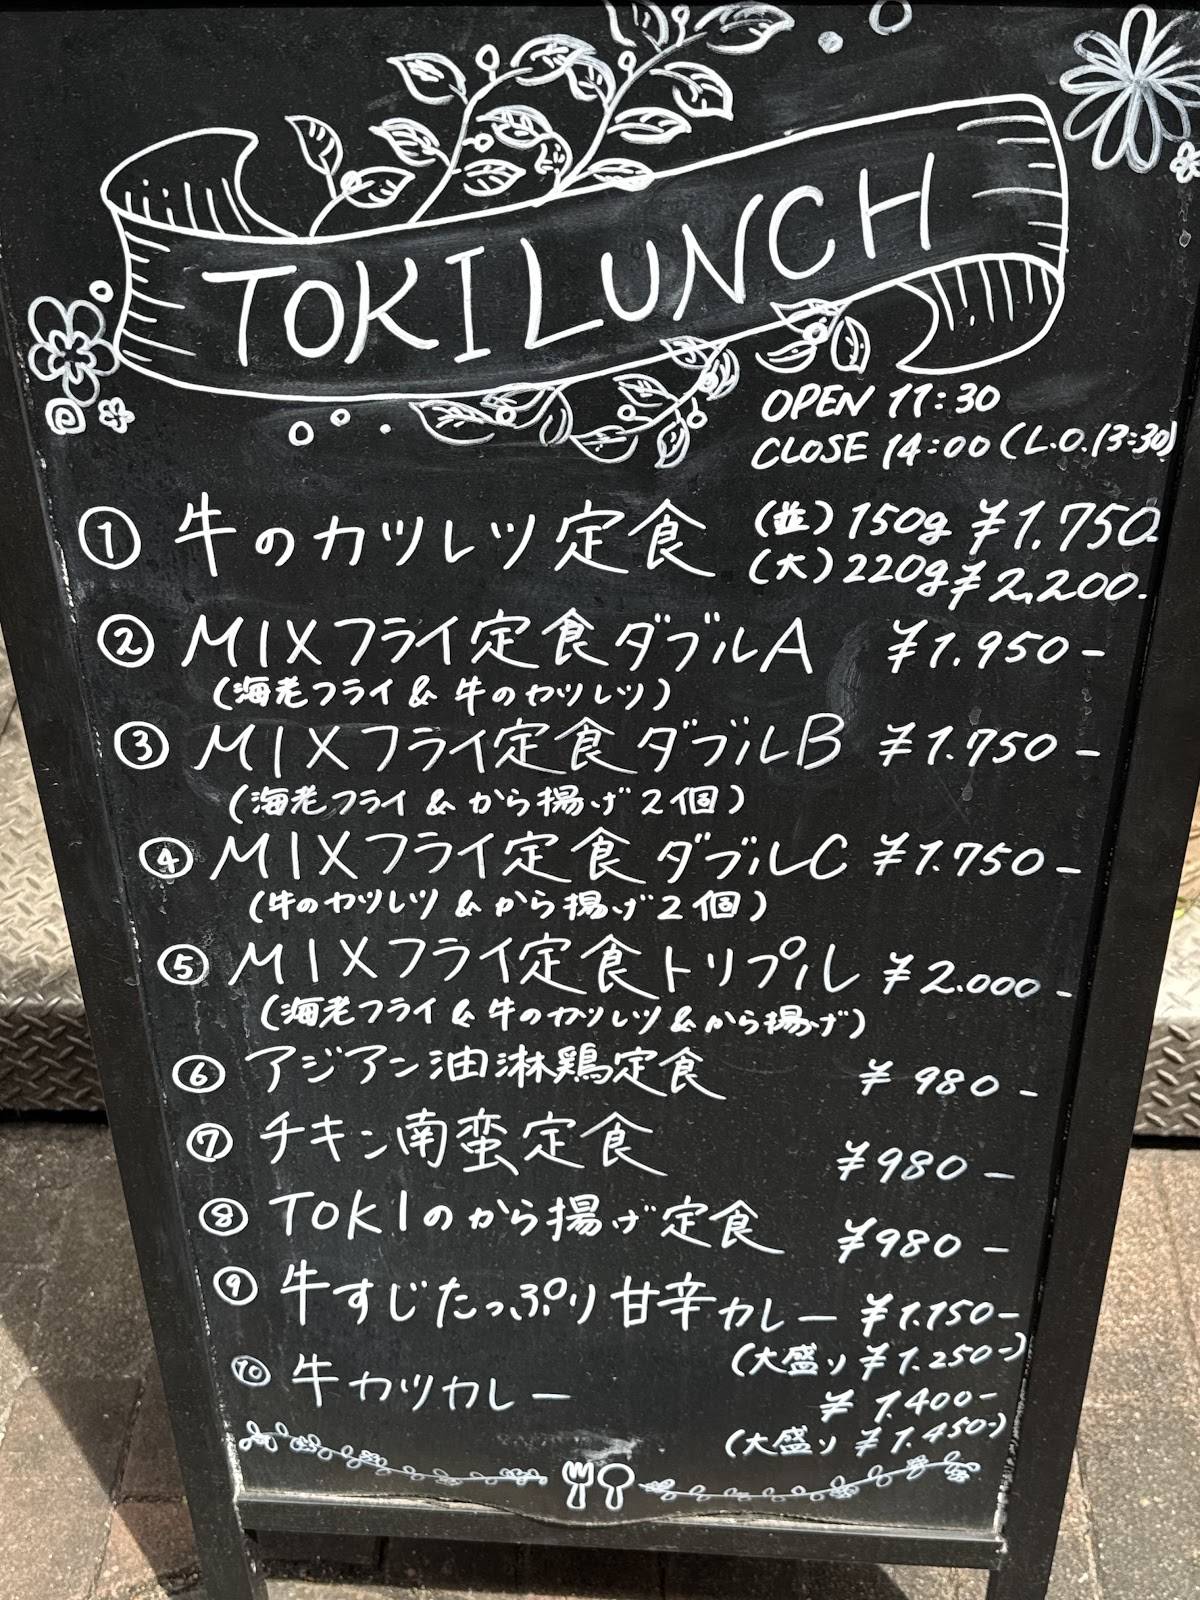 TOKI LUNCH
OPEN 11:30
CLOSE 14:00 (L.O.13:30)
① 牛のカツレツ定食 (並) 150g ¥1.750.
(大) 220g ¥2,200.
② MIXフライ定食ダブルA ¥1.950-
(海老フライ & 牛のカツレツ)
③ MIXフライ定食ダブルB ¥1.750-
(海老フライ & から揚げ2個)
④ MIXフライ定食ダブルC ¥1.750-
(牛のカツレツ & から揚げ2個)
⑤ MIXフライ定食トリプル ¥2.000-
(海老フライ & 牛のカツレツ & から揚げ)
⑥ アジアン油淋鶏定食 ¥980-
⑦ チキン南蛮定食 ¥980-
⑧ TOKIのから揚げ定食 ¥980-
⑨ 牛すじたっぷり甘辛カレー ¥1.150-
(大盛り ¥1.250-)
⑩ 牛カツカレー ¥1.400-
(大盛り ¥1.450-)